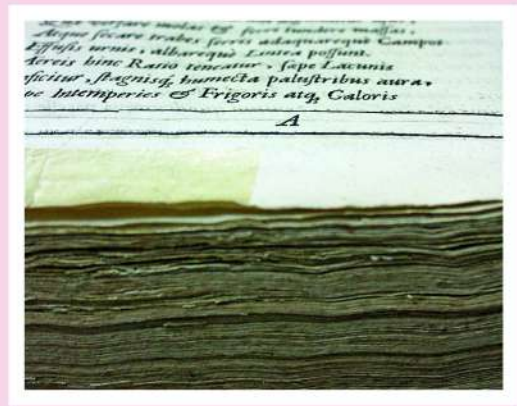 versare molas & ferri tundere massas,
Atque secare trabes ferris adaquareque Campos
Effusis urnis, albareque Lintea possunt.
Aereis hinc Ratio tencatur, sæpe Lacunis
ficitur, stagnisq; humecta palustribus aura,
Intemperies & Frigoris atq; Caloris
A